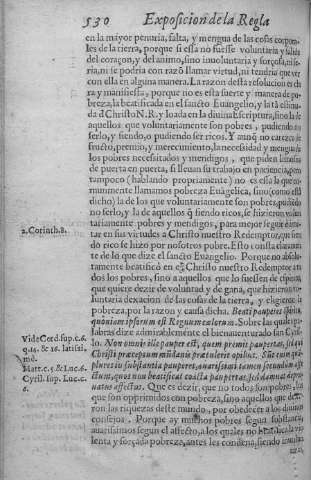 530 Exposicion de la Regla
en la mayor penuria, falta, y mengua de las cosas corpora-
les de la tierra, porque si essa no fuesse voluntaria y salida
del coraçon, y del animo, sino inuoluntaria y forçosa, ni se-
ria, ni se podria con razō llamar virtud, ni tendria que ver
con ella en alguna manera. La razon desta resolucion es cla-
ra y manifiesta, porque no es esta suerte y manera de po-
breza, la beatificada en el sancto Euangelio, y la tā estima-
da d Christo N.R. y loada en la diuina Escriptura, sino la de
aquellos que voluntariamente son pobres, pudiendo no
serlo, y siendo, o pudiendo ser ricos. Y aunq̄ no carezca de
fructo, premio, y merecimiento, la necessidad y mengua de
los pobres necessitados y mendigos, que piden limosna
de puerta en puerta, si lleuan su trabajo en paciencia, pero
tampoco (hablando propriamente) no es essa la que co-
munmente llamamos pobreza Euāgelica, sino (como está
dicho) la de los que voluntariamente son pobres, pudiendo
no serlo, y la de aquellos q̄ siendo ricos, se hizieron volun-
tariamente pobres y mendigos, para mejor seguir e imi-
tar en sus virtudes a Christo nuestro Redemptor, que sien-
2. Corinth. 8.
do rico se hizo por nosotros pobre. Esto consta claramen-
te de lo que dize el sancto Euangelio. Porque no absolu-
tamente beatificó en el Christo nuestro Redemptor a to-
dos los pobres, sino a aquellos que lo fuessen de espiritu,
que quiere dezir de voluntad y de gana, que hizieron vo-
luntaria dexacion de las cosas de la tierra, y eligieron la
pobreza, por la razon y causa dicha. Beati pauperes spiritu,
quoniam ipsorum est Regnum cælorum. Sobre las quales pa-
labras dize admirablemente el bienauenturado san Cyri-
Vide Cord. sup. c. 6.
q. 14. & 16. latissi-
mè.
lo. Non omnis ille pauper est, quem premit paupertas, sed qui
Christi præceptum mundanis prætulerit opibus. Sunt enim qui
Matt. c. 5 & Luc. 6.
Cyril. sup. Luc. c.
6.
pluresvbi substantia pauperes, auarissimi tamen secundum affe-
ctum, quos non beatificat coacta paupertas, sed damnat depra-
uatus affectus. Que es dezir, que no todos son pobres, los
que son opprimidos con pobreza, sino aquellos que dexa-
ron las riquezas deste mundo, por obedecer a los diuinos
consejos. Porque ay muchos pobres segun substancia,
auarissimos segun el affecto, a los quales no beatifica la vio-
lenta y forçada pobreza, antes les condena, siendo